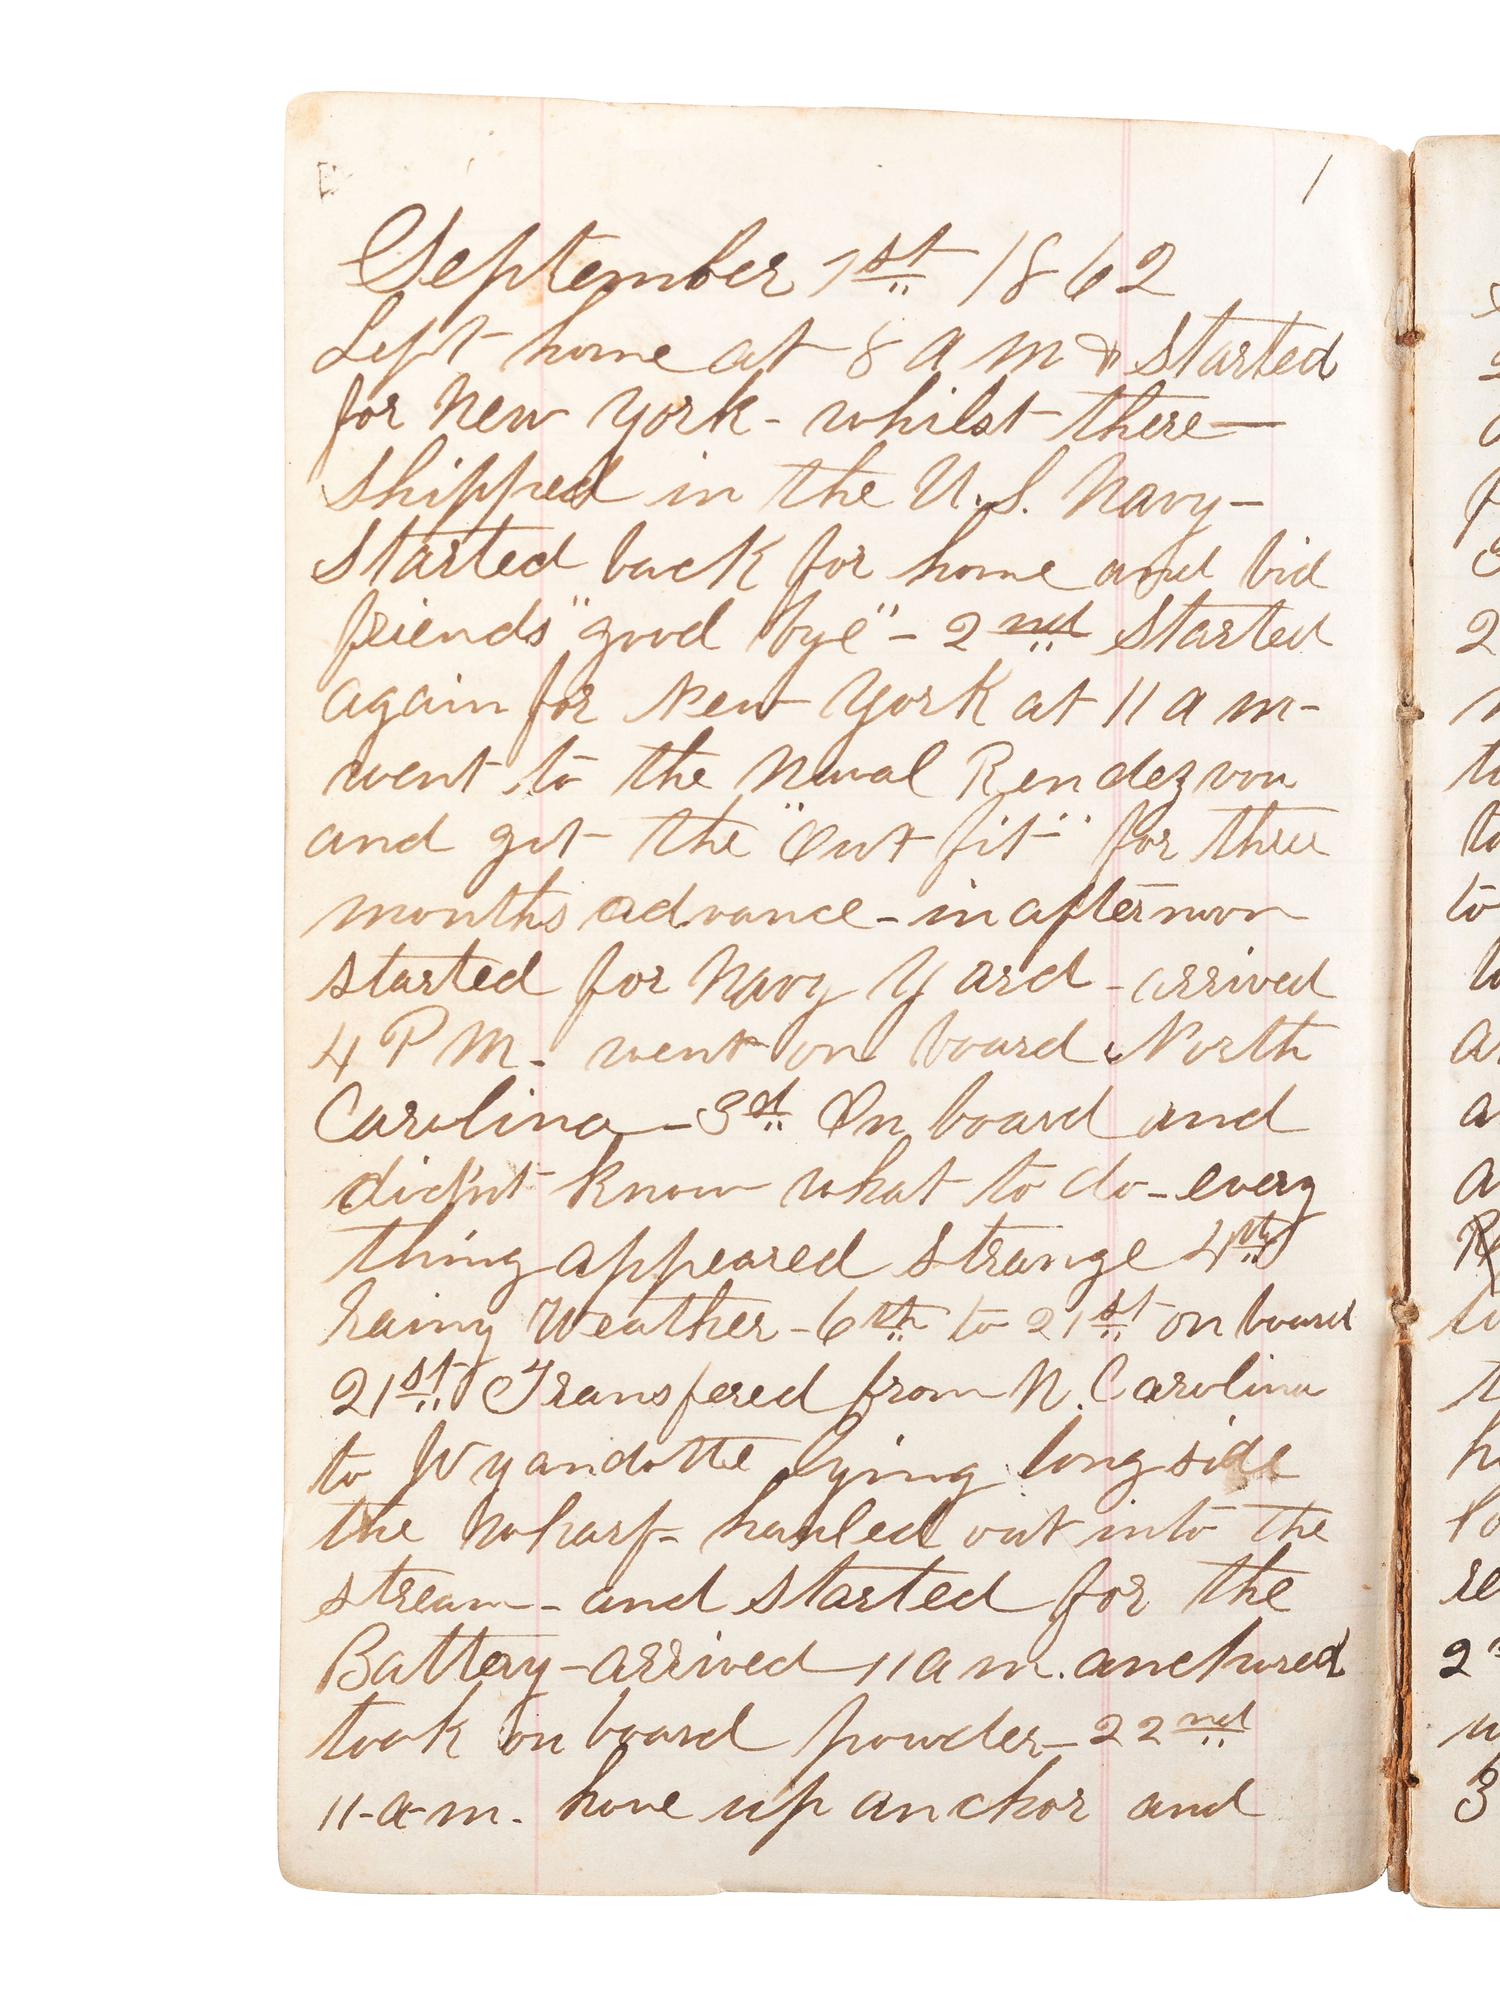 1
September 1st 1862
Left home at 8 a m & started
for New York - whilst there —
shipped in the U.S. Navy -
Started back for home and bid
friends "good bye" - 2nd Started
again for New York at 11 a m -
went to the Naval Rendezvou
and got the "Out fit" for three
months advance - in afternoon
started for Navy Yard - arrived
4 P M - went on board North
Carolina - 3d On board and
did'nt know what to do - every
thing appeared strange 4th
Rainy Weather - 6th to 21st on board
21st Transfered from N. Carolina
to Wyandotte lying longside
the wharf - hauled out into the
stream - and started for the
Battery - arrived 11 a m. anchored
took on board powder - 22nd
11-a-m. hove up anchor and